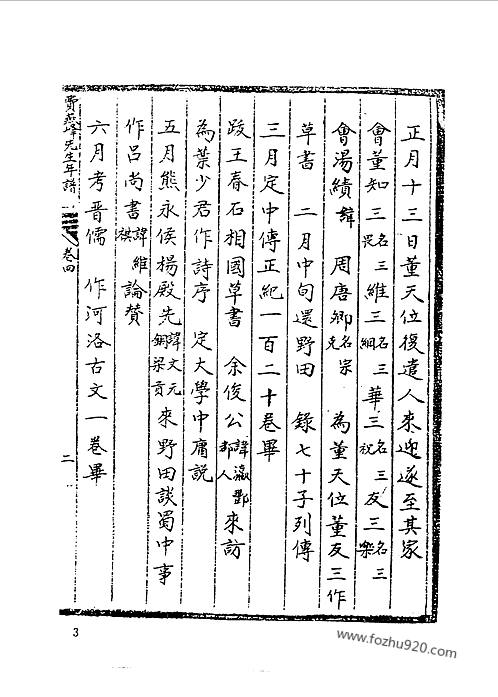 正月十三日董天位復遣人來迎遂至其家
會董知三名三畏維三名三綱華三名三祝友三名三樂
會湯績諱 周唐卿名宗堯 為董天位董友三作
草書 二月中旬還野田 錄七十子列傳
三月定中傳正紀一百二十卷畢
跋王春石相國草書 余俊公諱瀛鄷都人來訪
為葉少君作詩序 定大學中庸說
五月熊永侯楊殿先諱文元銅梁貢來野田談蜀中事
作呂尚書諱維祺論贊
六月考晋儒 作河洛古文一卷畢
賈 先生年譜 卷四 二
3
www.fozhu920.com